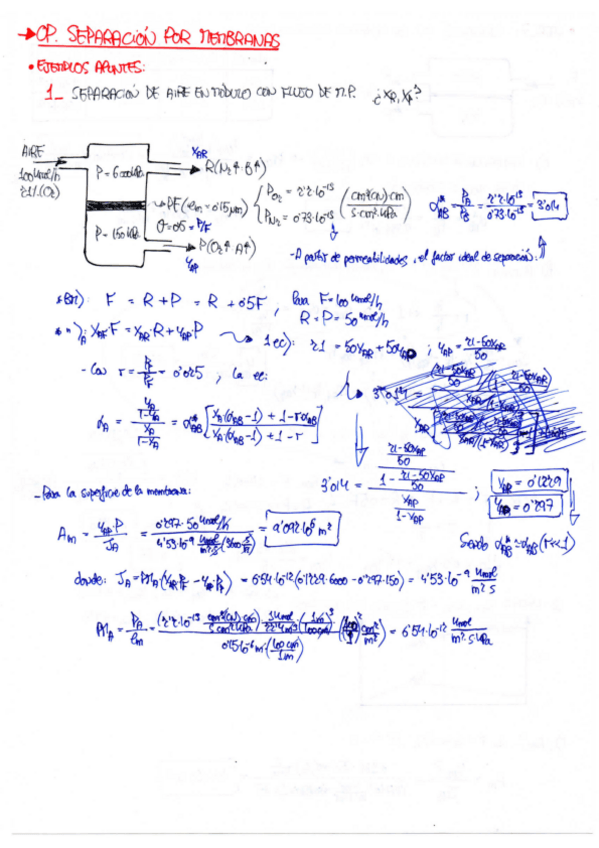 → OP. SEPARACIÓN POR MEMBRANAS
• EJEMPLOS APUNTES:
1_ SEPARACIÓN DE AIRE EN MÓDULO CON FLUJO DE M.P. ¿X_AR, Y_AP?
AIRE
100 kmol/h
21% (O₂)
P = 6000 kPa
P = 150 kPa
X_AR
R (N₂↑ B↑)
PE (em = 0'15 μm)
θ = 0'5 = P/F
P (O₂↑ A↑)
y_AP
P_O₂ = 2'2·10⁻¹³
P_N₂ = 0'73·10⁻¹³
(cm³(CN) cm / s·cm²·kPa)
α*_AB = P_A/P_B = 2'2·10⁻¹³ / 0'73·10⁻¹³ = 3'014
- A partir de permeabilidades, el factor ideal de separación:
F = R + P = R + 0'5F, Para F = 100 kmol/h
R = P = 50 kmol/h
X_AF·F = X_AR·R + y_AP·P → 1 ec): 21 = 50X_AR + 50y_AP ; y_AP = (21 - 50X_AR)/50
- Con r = P_P/P_F = 0'025, la ec:
α_A = (y_A/(1-y_A)) / (X_A/(1-X_A)) = α*_AB [(X_A(α_AB - 1) + 1 - rα_AB) / (X_A(α_AB - 1) + 1 - r)]
3'014 = ((21 - 50X_AR)/50 / (1 - (21 - 50X_AR)/50)) / (X_AR/(1 - X_AR)) ; X_AR = 0'1229
y_AP = 0'297
Siendo α*_AB ≈ α_AB (r<<1)
- Para la superficie de la membrana:
A_m = y_AP·P / J_A = 0'297·50 kmol/h / (4'53·10⁻⁹ kmol/m²·s (3600 s/h)) = 9'092·10⁵ m²
donde: J_A = PM_A (X_AR·P_F - y_AP·P_P) = 6'54·10⁻¹² (0'1229·6000 - 0'297·150) = 4'53·10⁻⁹ kmol/m²·s
PM_A = P_A/em = = 6'54·10⁻¹² kmol/m²·s·kPa